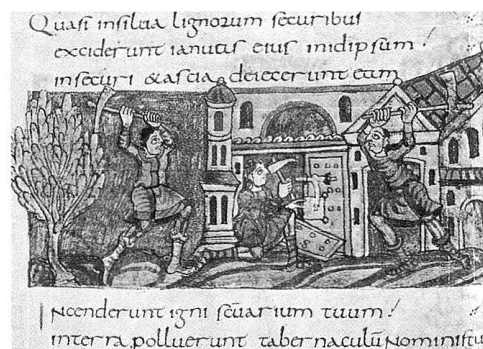 Quasi insilua lignorum securibus
exciderunt ianuas eius inidipsum
insecuri &ascia deiecerunt eam
Ncenderunt igni scuarium tuum
interra polluerunt tabernaculū Noministui